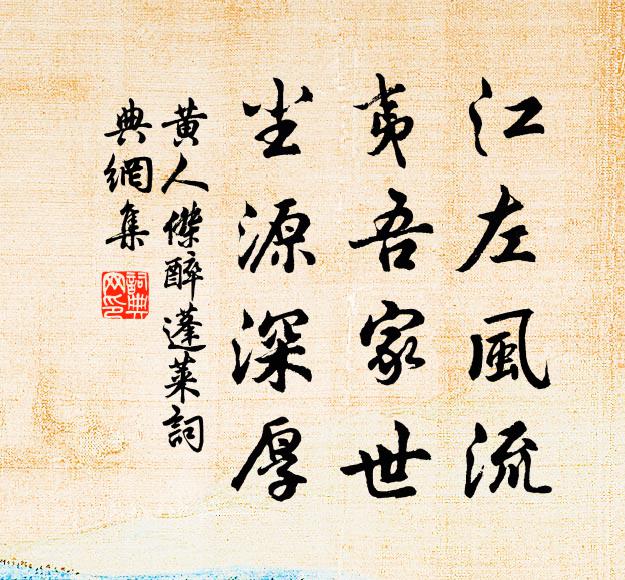 江左風流
夷吾家世
坐源深厚
黄人傑醉蓬萊詞
典網集
詞典
网印